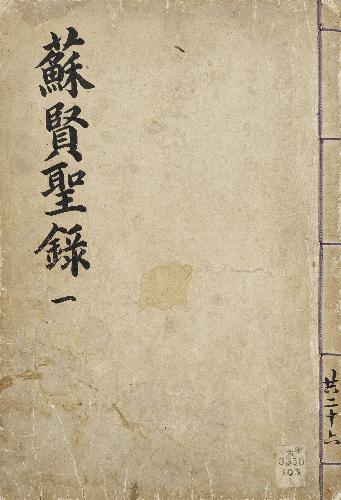 蘇賢聖錄 一
共二十六
3350
103